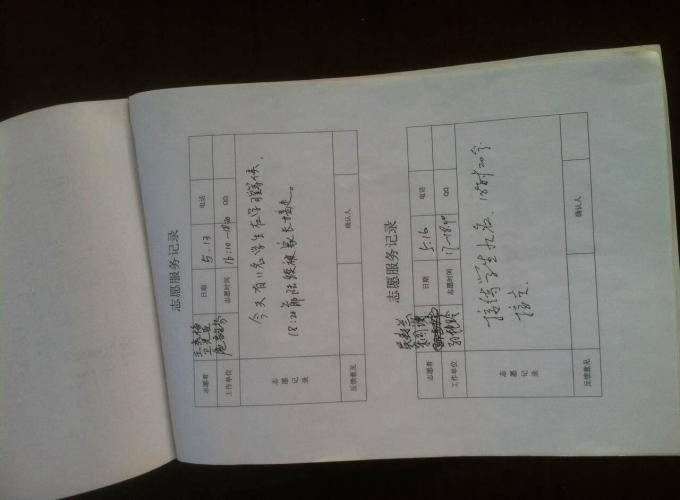 志愿服务记录
志愿者 日期 5.13 电话
工作单位 志愿时间 16:10—18:20 QQ
志愿记录
今天有11名学生在学习等候,
18:20前陆续被家长接走。
反馈意见 确认人
志愿服务记录
志愿者 日期 5.16 电话
工作单位 志愿时间 QQ
志愿记录
接待学生九名、
接走.
反馈意见 确认人